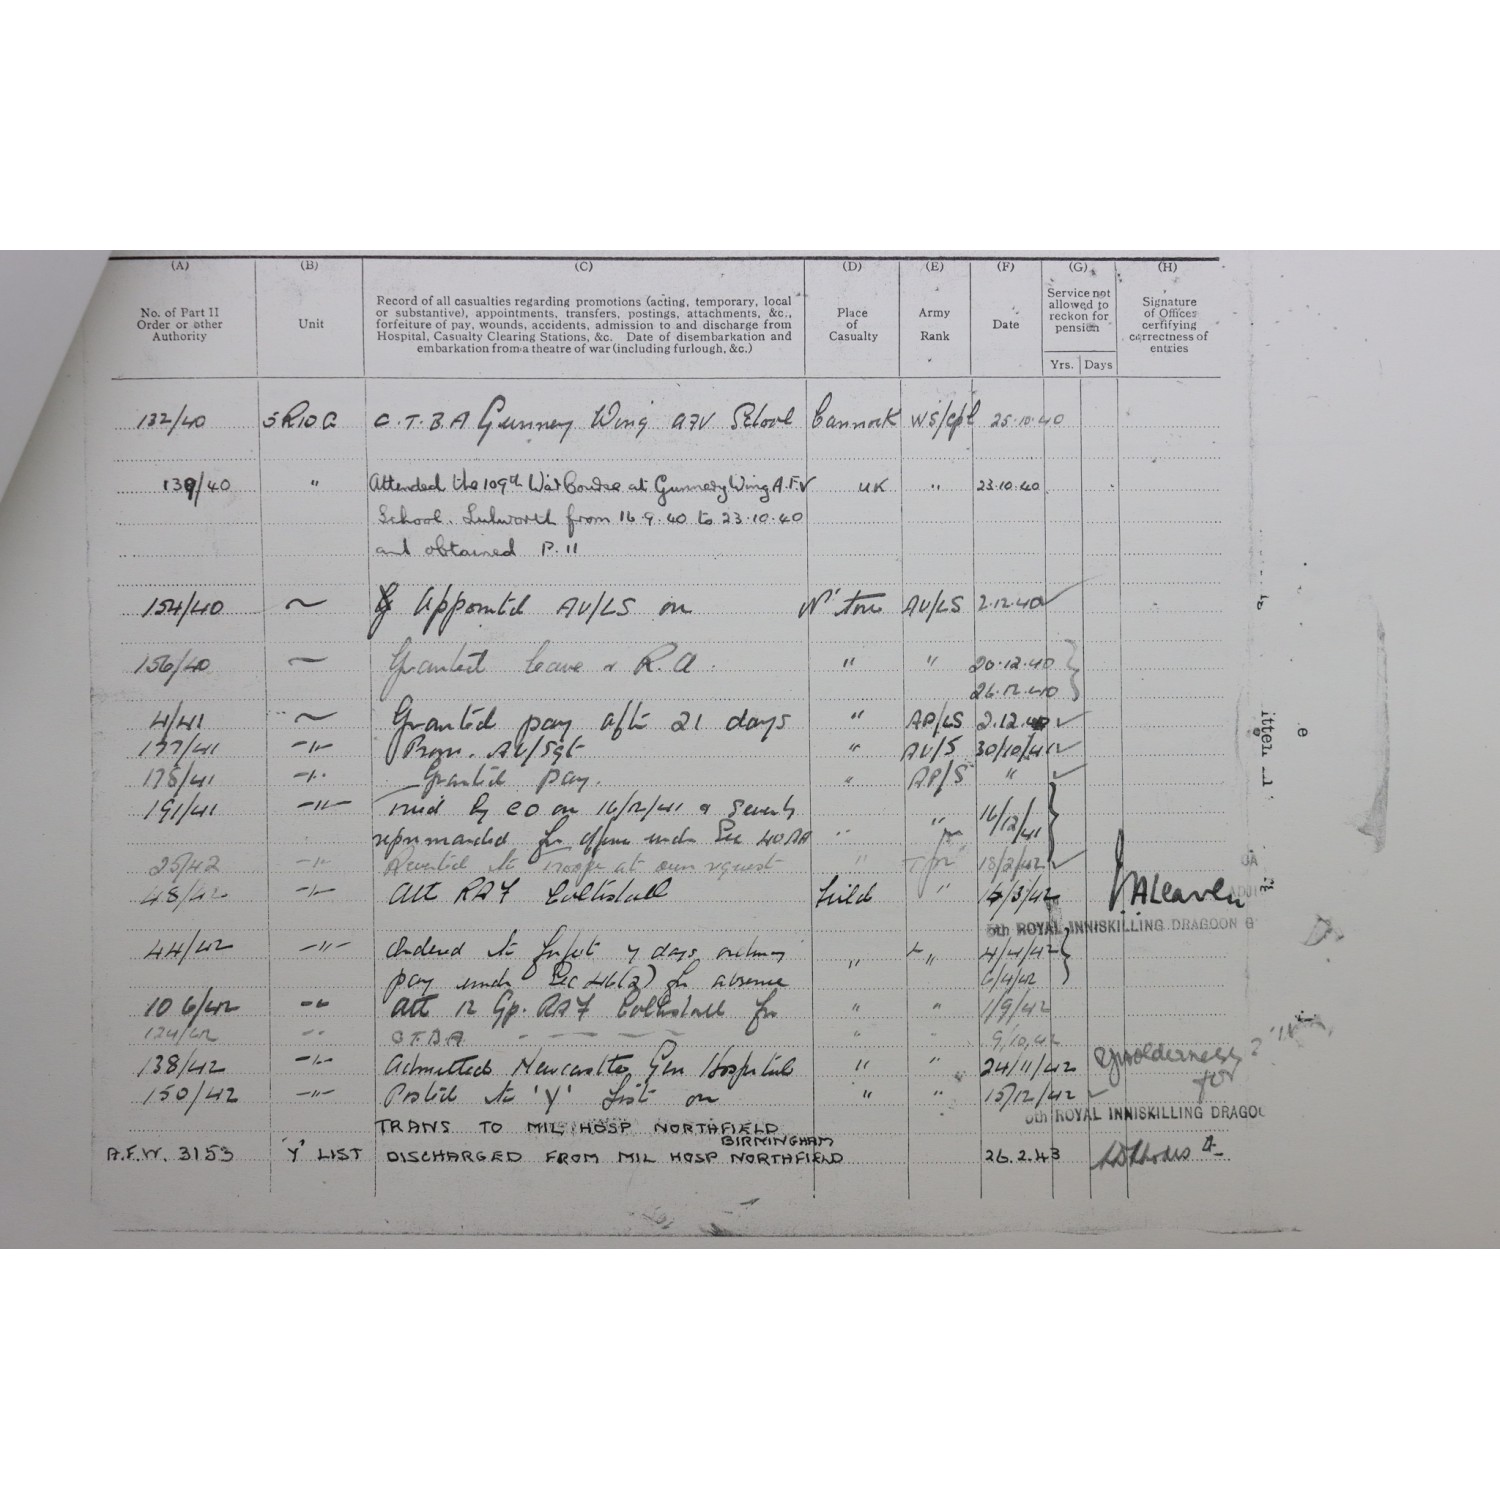 (A) (B) (C) (D) (E) (F) (G) (H)
No. of Part II Order or other Authority
Unit
Record of all casualties regarding promotions (acting, temporary, local
or substantive), appointments, transfers, postings, attachments, &c.,
forfeiture of pay, wounds, accidents, admission to and discharge from
Hospital, Casualty Clearing Stations, &c. Date of disembarkation and
embarkation from a theatre of war (including furlough, &c.)
Place of Casualty
Army Rank
Date
Service not allowed to reckon for pension
Yrs. Days
Signature of Officer certifying correctness of entries
132/40 5 RIDG C.T.B.A Gunnery Wing AFV School Cannock WS/Cpl 25.10.40
139/40 " Attended the 109th War Course at Gunnery Wing A.F.V UK " 23.10.40
School. Lulworth from 16.9.40 to 23.10.40
and obtained P.11
154/40 ~ Appointed AU/LS on AU/LS 2.12.40
156/40 ~ Granted leave & R.A. " " 20.12.40
26.12.40
4/41 ~ Granted pay after 21 days " AP/LS 2.12.40
177/41 -"- Prom. AU/Sgt " AU/S 30/10/41
178/41 -"- Granted pay. " AP/S "
191/41 -"- Tried by CO on 16/12/41 & severely " 16/12/41
reprimanded for offence under Sec 40 AA "
25/42 -"- Reverted to trooper at own request " Tpr 18/2/42
48/42 -"- Att RAF Coltishall Field " /3/42
5th ROYAL INNISKILLING DRAGOON G
44/42 -"- Ordered to forfeit 7 days ordinary " " 4/4/42
pay under Sec 46(2) for absence 6/4/42
106/42 -"- Att 12 Gp. RAF Coltishall for " " 1/9/42
124/42 -"- C.T.B.A " " 9/10/42
138/42 -"- Admitted Newcastle Gen Hospital " " 24/11/42
for
150/42 -"- Posted to 'Y' List on " " 15/12/42
5th ROYAL INNISKILLING DRAGOO
TRANS TO MIL HOSP NORTHFIELD
BIRMINGHAM
A.F.W. 3153 'Y' LIST DISCHARGED FROM MIL HOSP NORTHFIELD 26.2.43